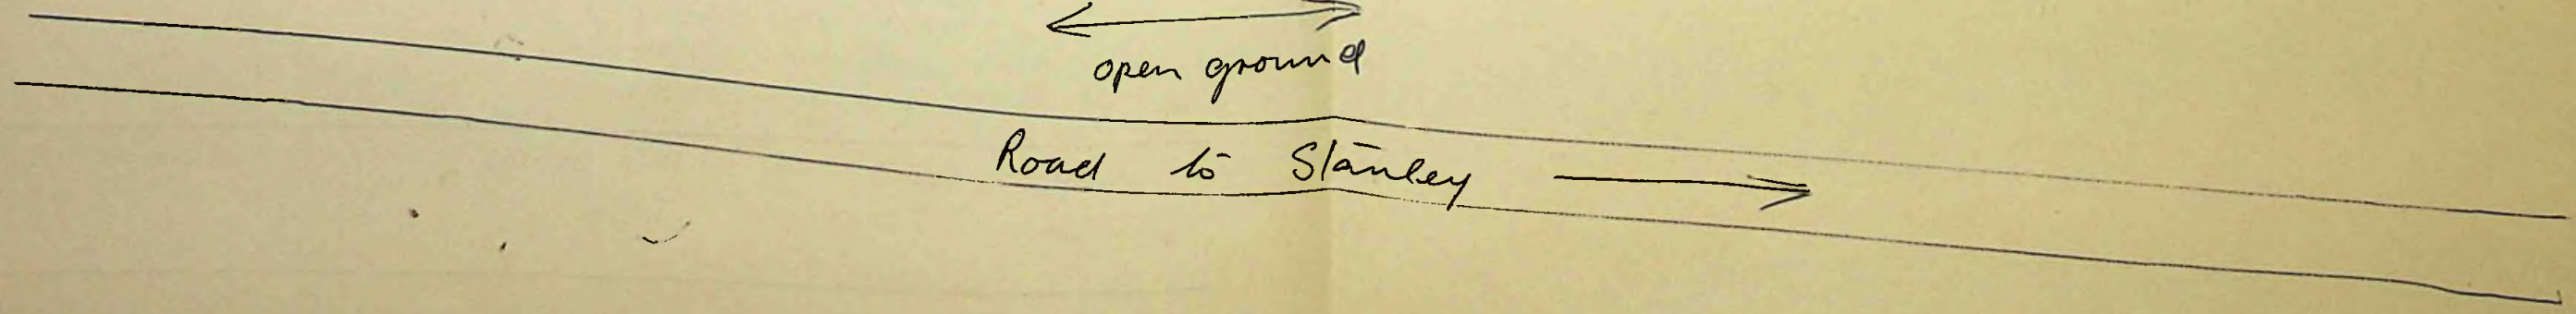 open ground
Road to Stanley